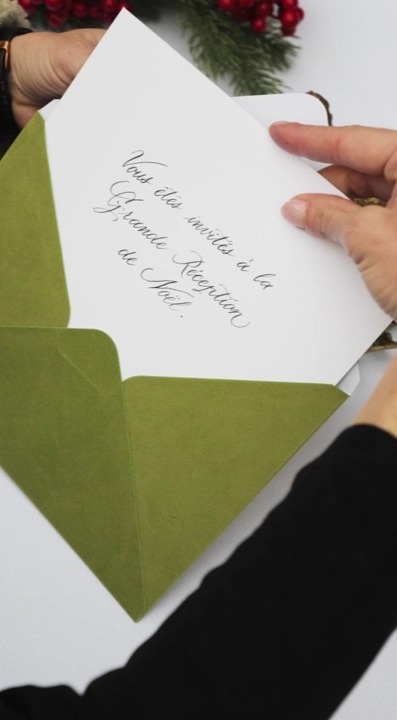 Vous êtes invités à la
Grande Réception
de Noël.